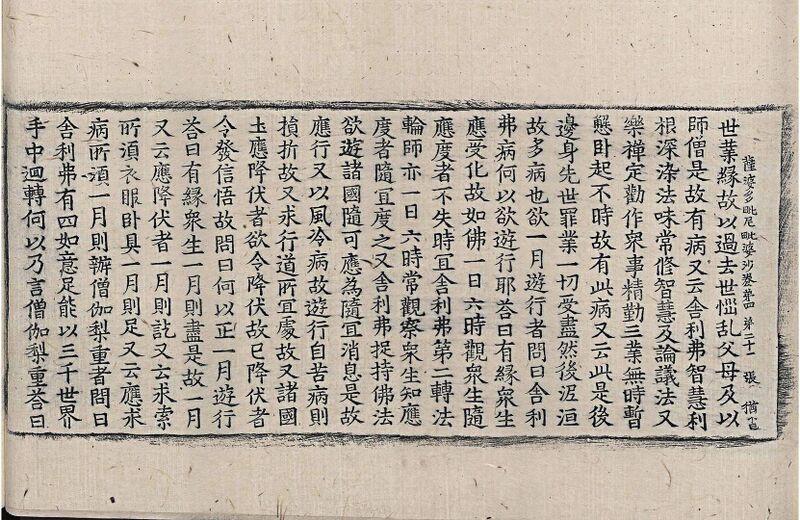 薩婆多毗尼毗婆沙卷第四 第二十一張 猶
世業縁故以過去世惱乱父母及以
師僧是故有病又云舎利弗智慧利
根深染法味常修智慧及論議法又
樂禪定勸作衆事精勤三業無時暫
懸卧起不時故有此病又云此是後
邊身先世罪業一切受盡然後涅洹
故多病也欲一月遊行者問曰舎利
弗病何以欲遊行耶荅曰有縁衆生
應受化故如佛一日六時觀衆生隨
應度者不失時冝舎利弗第二轉法
輪師亦一日六時常觀察衆生知應
度者隨冝度之又舎利弗捉持佛法
欲遊諸國隨可應為隨冝消息是故
應行又以風冷病故遊行自苦病則
損折故又求行道所冝處故又諸國
土應降伏者欲令降伏故巳降伏者
令發信悟故問曰何以正一月遊行
荅曰有縁衆生一月則盡是故一月
又云應降伏者一月則訖又云求索
所湏衣服卧具一月則足又云應求
病所湏一月則辦僧伽梨重者問曰
舎利弗有四如意足能以三千世界
手中迴轉何以乃言僧伽梨重荅曰